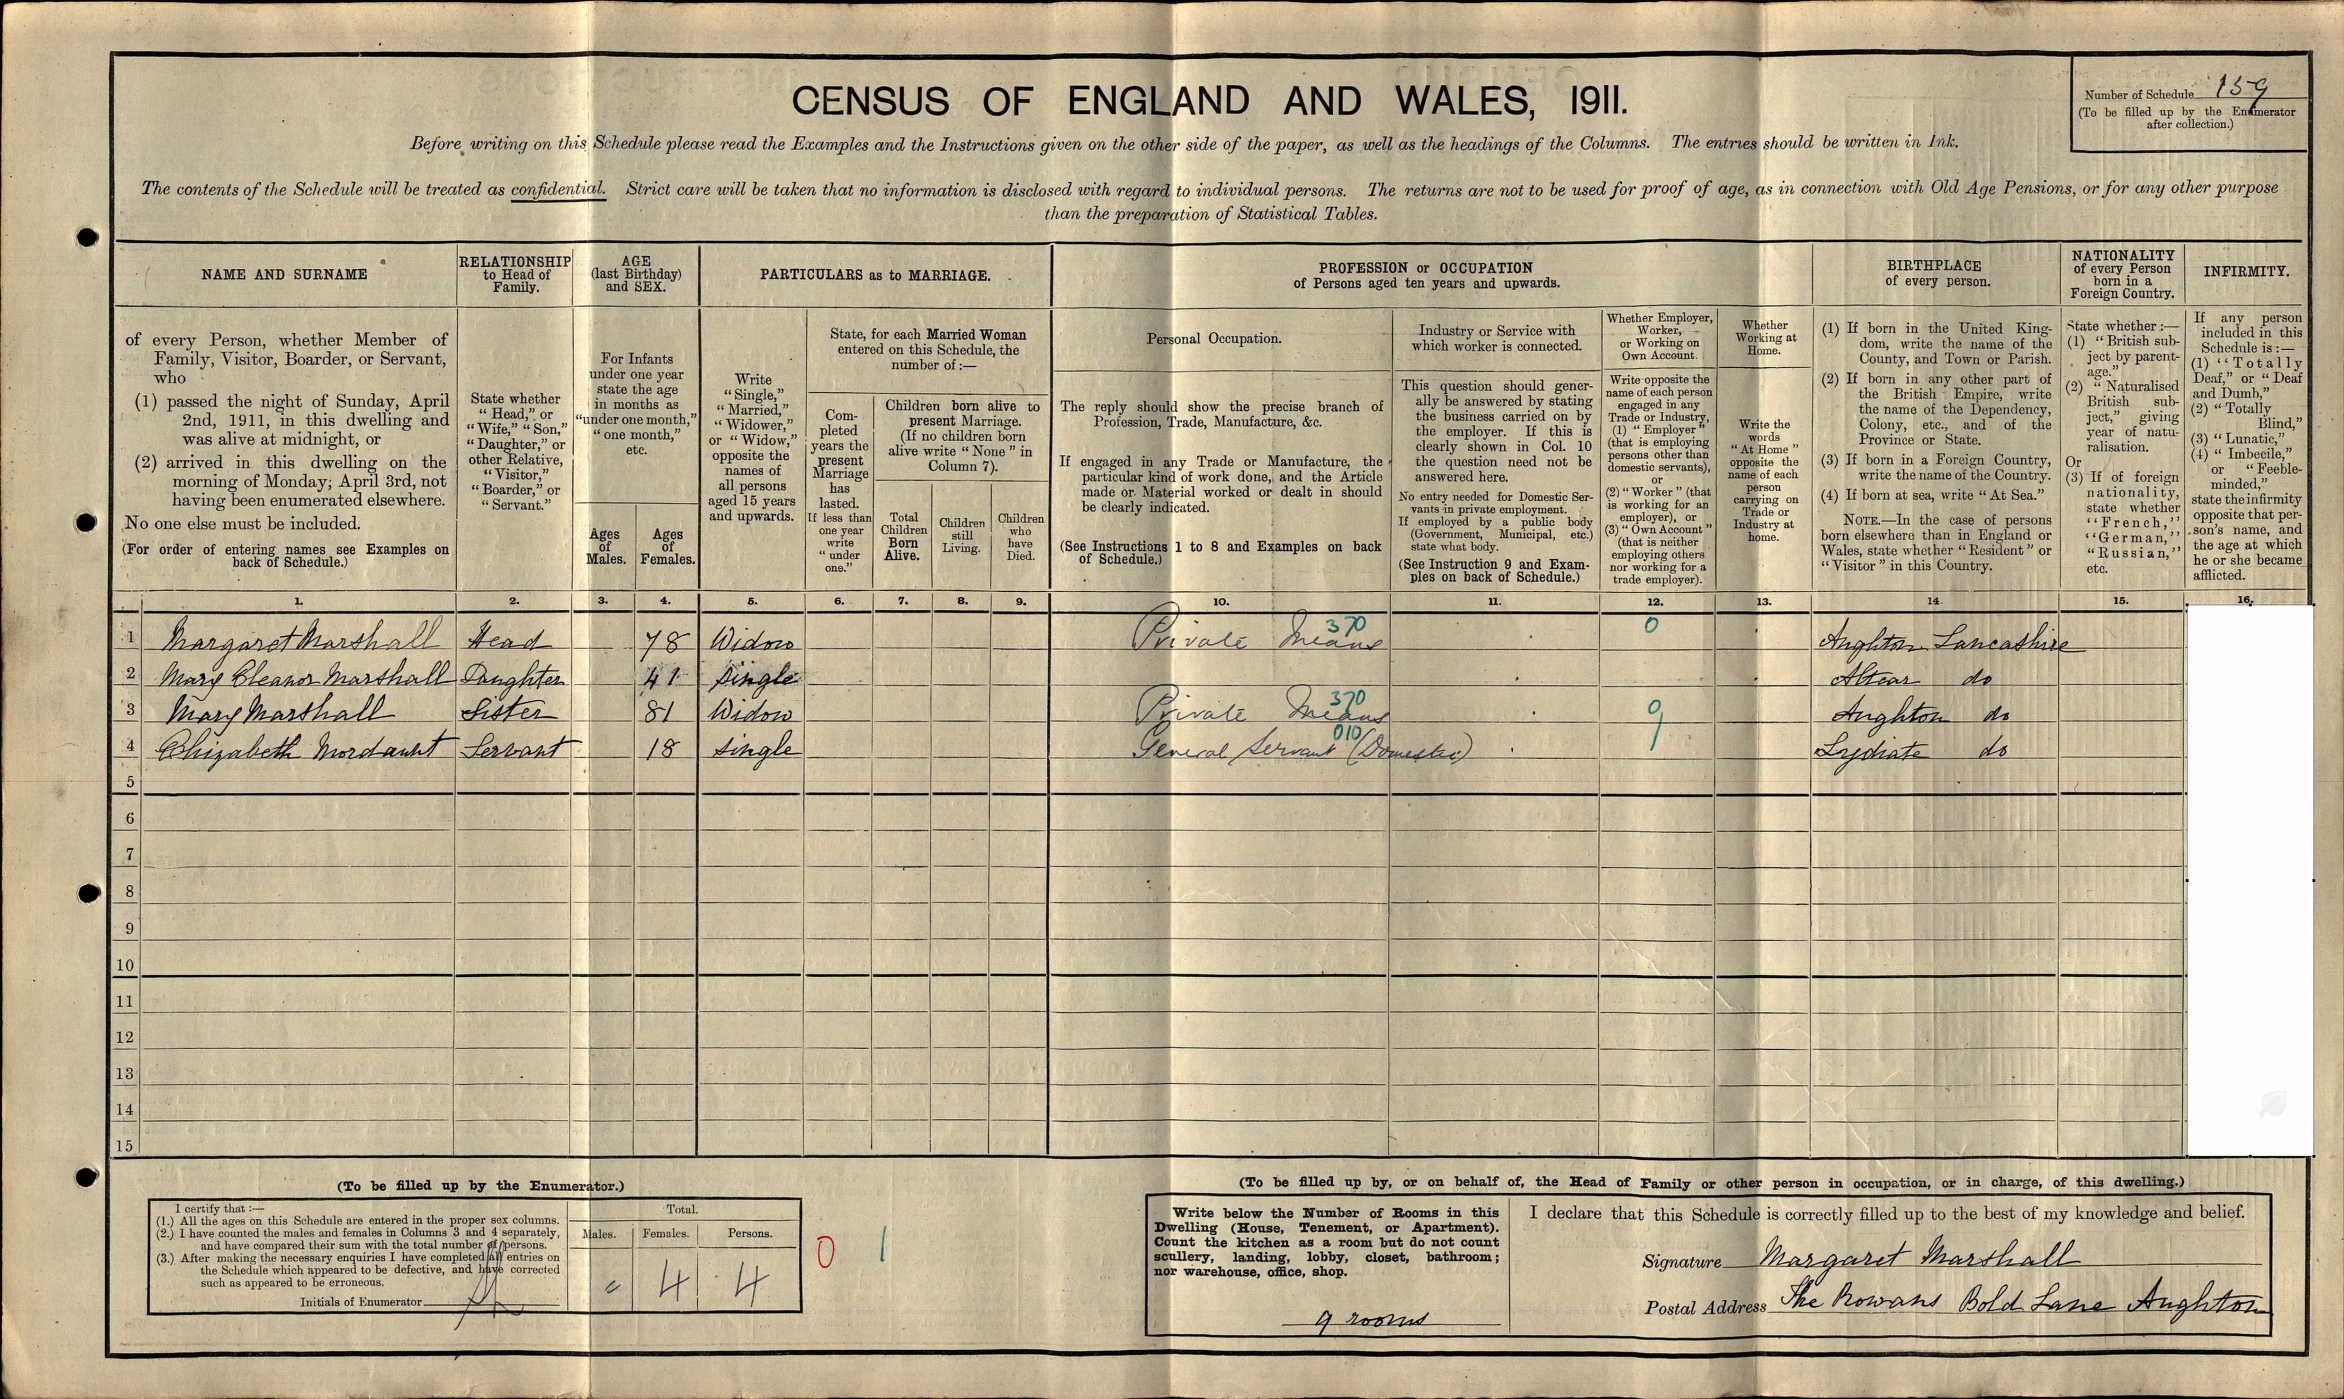 CENSUS OF ENGLAND AND WALES, 1911.
Number of Schedule 159
(To be filled up by the Enumerator
after collection.)
Before writing on this Schedule please read the Examples and the Instructions given on the other side of the paper, as well as the headings of the Columns. The entries should be written in Ink.
The contents of the Schedule will be treated as confidential. Strict care will be taken that no information is disclosed with regard to individual persons. The returns are not to be used for proof of age, as in connection with Old Age Pensions, or for any other purpose
than the preparation of Statistical Tables.
NAME AND SURNAME
of every Person, whether Member of
Family, Visitor, Boarder, or Servant,
who
(1) passed the night of Sunday, April
2nd, 1911, in this dwelling and
was alive at midnight, or
(2) arrived in this dwelling on the
morning of Monday, April 3rd, not
having been enumerated elsewhere.
No one else must be included.
(For order of entering names see Examples on
back of Schedule.)
RELATIONSHIP
to Head of
Family.
State whether
"Head," or
"Wife," "Son,"
"Daughter," or
other Relative,
"Visitor,"
"Boarder," or
"Servant."
AGE
(last Birthday)
and SEX.
For Infants
under one year
state the age
in months as
"under one month,"
"one month,"
etc.
Ages
of
Males.
Ages
of
Females.
PARTICULARS as to MARRIAGE.
Write
"Single,"
"Married,"
"Widower,"
or "Widow,"
opposite the
names of
all persons
aged 15 years
and upwards.
State, for each Married Woman
entered on this Schedule, the
number of:—
Com-
pleted
years the
present
Marriage
has
lasted.
If less than
one year
write
"under
one."
Children born alive to
present Marriage.
(If no children born
alive write "None" in
Column 7).
Total
Children
Born
Alive.
Children
still
Living.
Children
who
have
Died.
PROFESSION or OCCUPATION
of Persons aged ten years and upwards.
Personal Occupation.
The reply should show the precise branch of
Profession, Trade, Manufacture, &c.
If engaged in any Trade or Manufacture, the
particular kind of work done, and the Article
made or Material worked or dealt in should
be clearly indicated.
(See Instructions 1 to 8 and Examples on back
of Schedule.)
Industry or Service with
which worker is connected.
This question should gener-
ally be answered by stating
the business carried on by
the employer. If this is
clearly shown in Col. 10
the question need not be
answered here.
No entry needed for Domestic Ser-
vants in private employment.
If employed by a public body
(Government, Municipal, etc.)
state what body.
(See Instruction 9 and Exam-
ples on back of Schedule.)
Whether Employer,
Worker,
or Working on
Own Account.
Write opposite the
name of each person
engaged in any
Trade or Industry,
(1) "Employer"
(that is employing
persons other than
domestic servants),
or
(2) "Worker" (that
is working for an
employer), or
(3) "Own Account"
(that is neither
employing others
nor working for a
trade employer).
Whether
Working at
Home.
Write the
words
"At Home"
opposite the
name of each
person
carrying on
Trade or
Industry at
home.
BIRTHPLACE
of every person.
(1) If born in the United King-
dom, write the name of the
County, and Town or Parish.
(2) If born in any other part of
the British Empire, write
the name of the Dependency,
Colony, etc., and of the
Province or State.
(3) If born in a Foreign Country,
write the name of the Country.
(4) If born at sea, write "At Sea."
NOTE.—In the case of persons
born elsewhere than in England or
Wales, state whether "Resident" or
"Visitor" in this Country.
NATIONALITY
of every Person
born in a
Foreign Country.
State whether:—
(1) "British sub-
ject by parent-
age."
(2) "Naturalised
British sub-
ject," giving
year of natu-
ralisation.
Or
(3) If of foreign
nationality,
state whether
"French,"
"German,"
"Russian,"
etc.
INFIRMITY.
If any person
included in this
Schedule is:—
(1) "Totally
Deaf," or "Deaf
and Dumb,"
(2) "Totally
Blind,"
(3) "Lunatic,"
(4) "Imbecile,"
or "Feeble-
minded,"
state the infirmity
opposite that per-
son's name, and
the age at which
he or she became
afflicted.
1. 2. 3. 4. 5. 6. 7. 8. 9. 10. 11. 12. 13. 14 15. 16.
1 Margaret Marshall Head 78 Widow Private Means 370 0 Aughton Lancashire
2 Mary Eleanor Marshall Daughter 41 Single Altcar do
3 Mary Marshall Sister 81 Widow Private Means 370 0 Aughton do
4 Elizabeth Mordaunt Servant 18 Single General Servant (Domestic) 010 Lydiate do
5
6
7
8
9
10
11
12
13
14
15
(To be filled up by the Enumerator.)
I certify that:—
(1.) All the ages on this Schedule are entered in the proper sex columns.
(2.) I have counted the males and females in Columns 3 and 4 separately,
and have compared their sum with the total number of persons.
(3.) After making the necessary enquiries I have completed all entries on
the Schedule which appeared to be defective, and have corrected
such as appeared to be erroneous.
Initials of Enumerator
Total.
Males. Females. Persons.
4 4
0 1
(To be filled up by, or on behalf of, the Head of Family or other person in occupation, or in charge, of this dwelling.)
Write below the Number of Rooms in this
Dwelling (House, Tenement, or Apartment).
Count the kitchen as a room but do not count
scullery, landing, lobby, closet, bathroom;
nor warehouse, office, shop.
9 rooms
I declare that this Schedule is correctly filled up to the best of my knowledge and belief.
Signature Margaret Marshall
Postal Address The Rowans Bold Lane Aughton